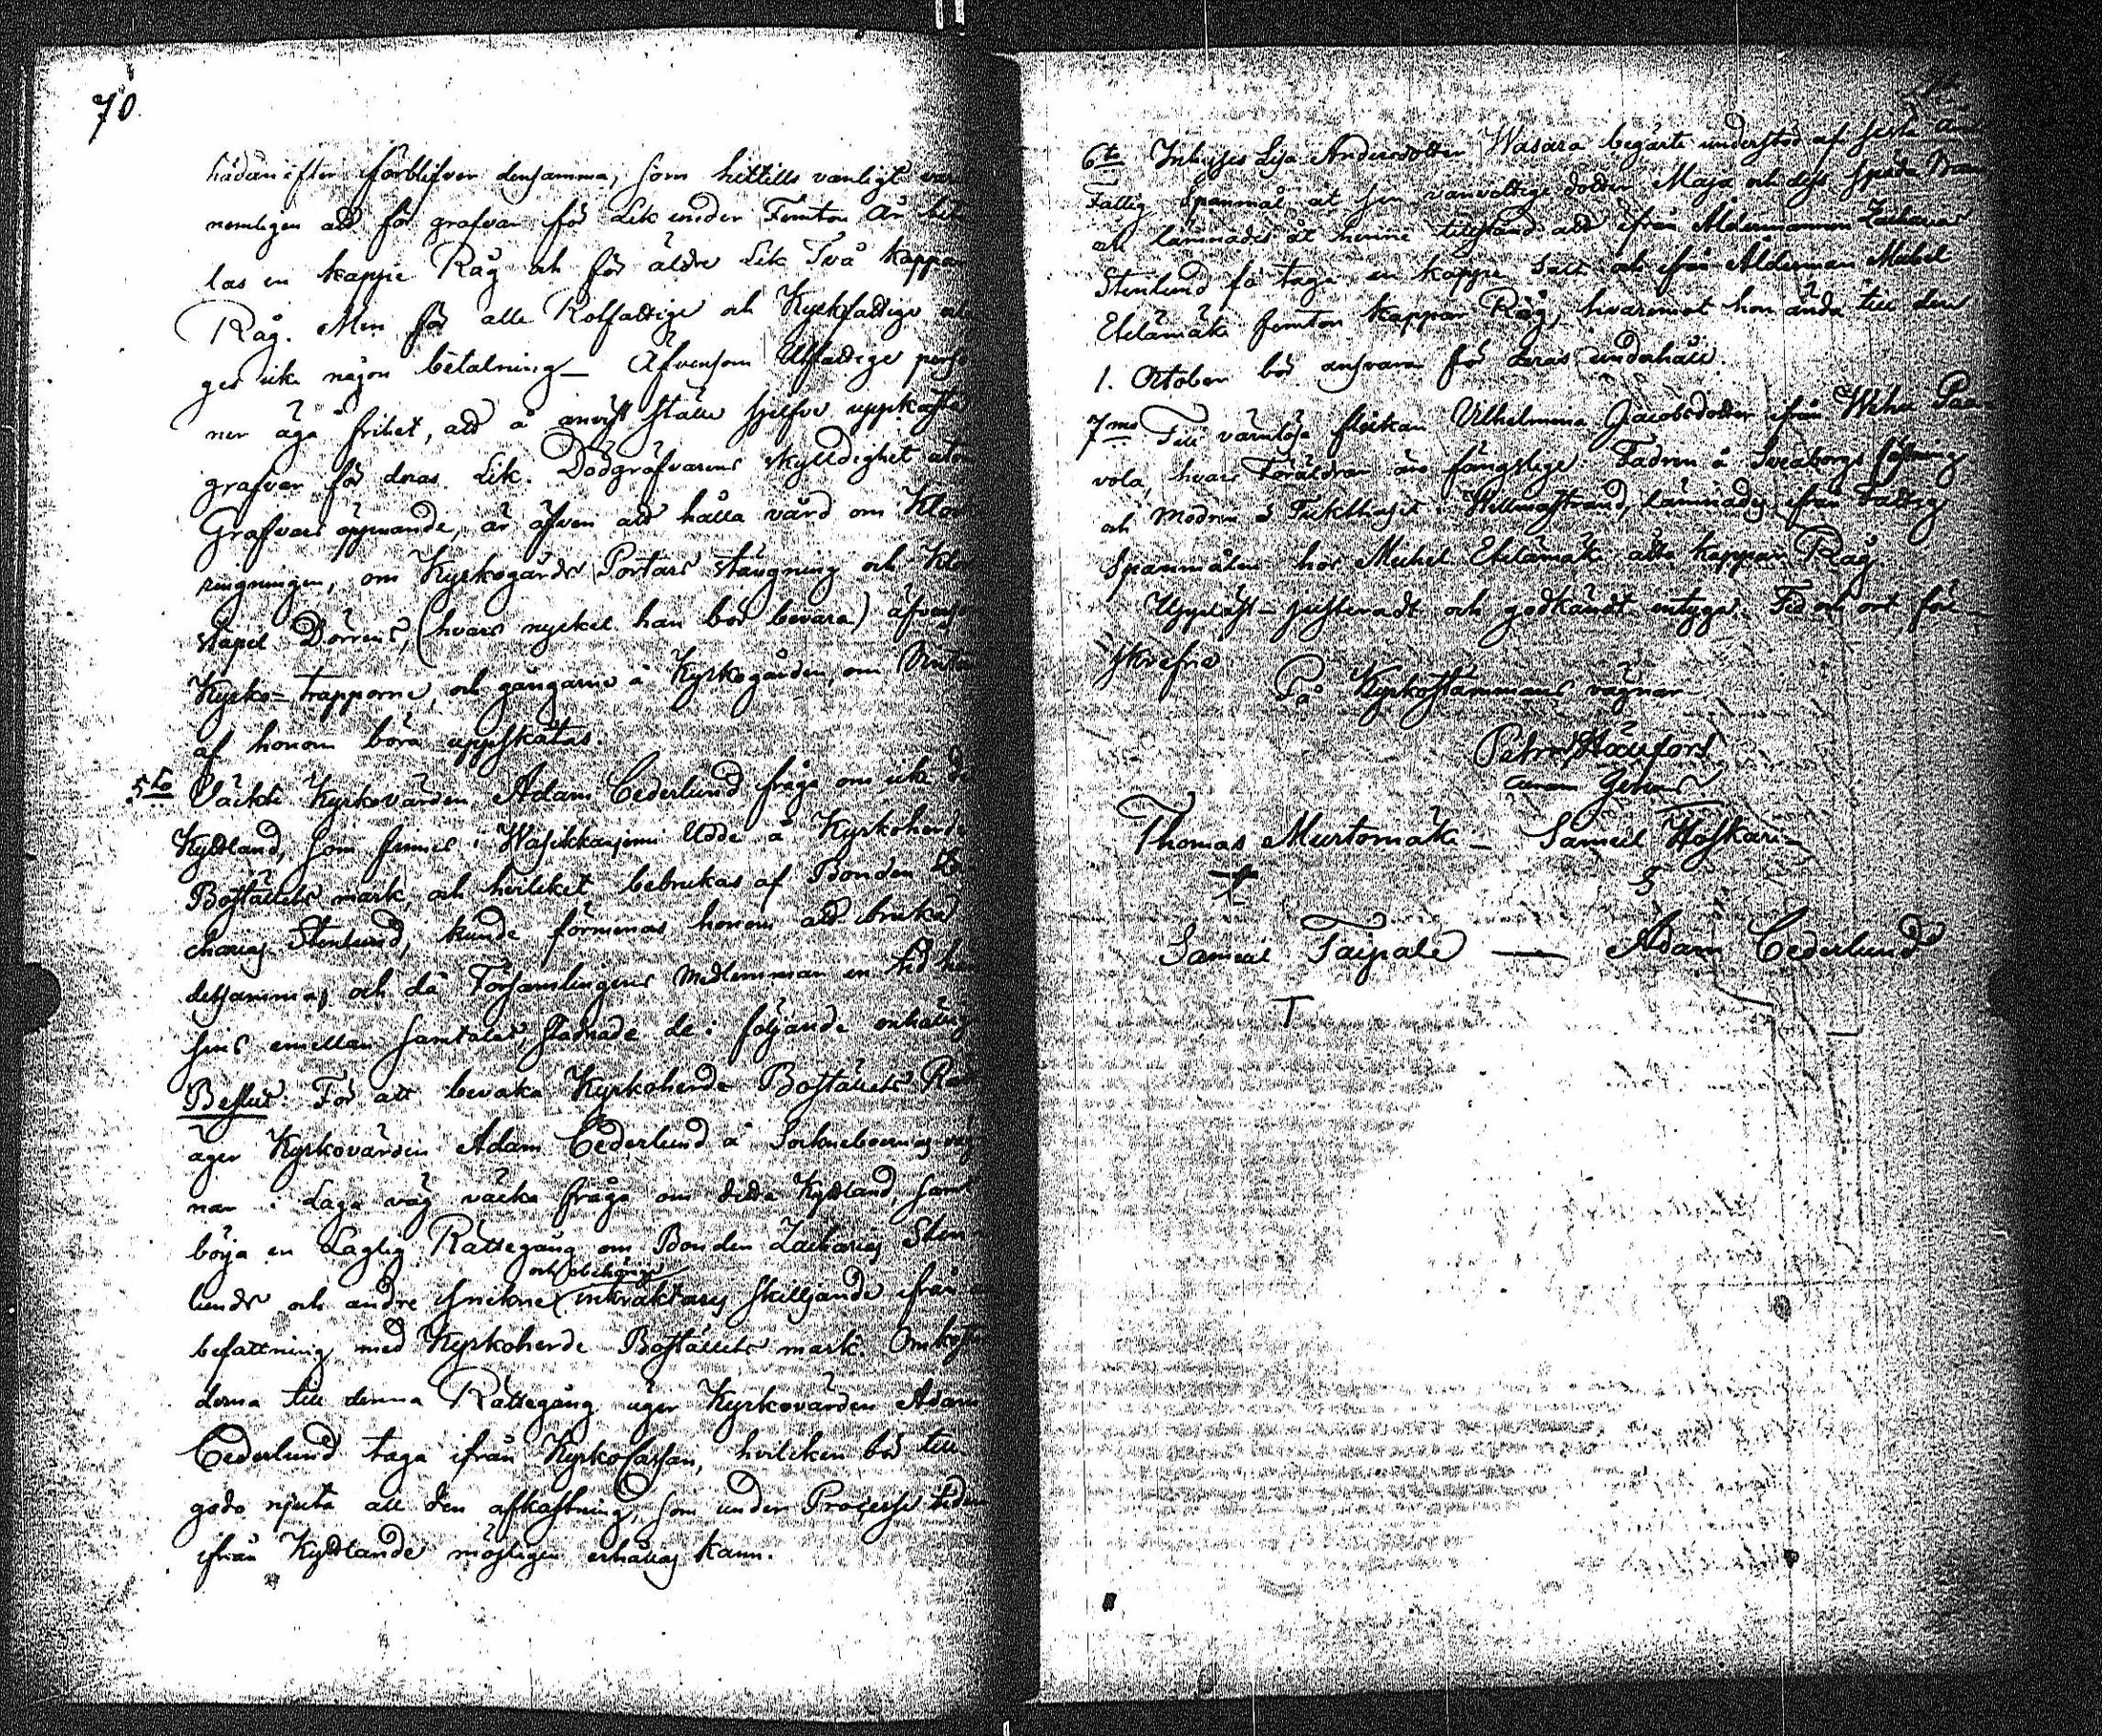 70.
hädanefter förblifver densamma, som hittills vanligt
nemligen att för grafvar för Lik under Femton år
las en kappe Råg och för äldre Lik Två kappar
Råg. Men för alle Rotfattige och Kyrkfattige
ges icke någon betalning – Äfvensom Utfattige
ner äga frihet, att å anvist ställe sjelfve uppkasta
grafvar för deras Lik. Dödgräfvarens skylldighet
Grafvars öppnande, är äfven att hålla vård om
ringningen, om Kyrkogårds Portars stängning och
stapel Dörrens, (hvars nyckel han bör bevara)
Kyrko-trapporne, och gångarne å Kyrkogården, om
af honom böra uppskottas.
5to Väckte Kyrkovärden Adam Cederlund fråga om icke
Kyttland, som finnes i Wasikkaniemi Udde å Kyrkoherde
Boställets mark, och hvilcket bebrukas af Bonden
charias Stenlund, kunde förmenas honom att bruka
detsamma, och då Församlingens Medlemmar en tid
sins emellan samtalat, stadnade de i följande
Beslut: För att bevaka Kyrkoherde Boställets
äger Kyrkovärden Adam Cederlund å Sockneboernas
nar i Laga väg väcka fråga om detta Kyttland, samt
börja en Laglig Rättegång om Bonden Zacharias Sten-
och obehörige
lunds och andre inkräktares skilljande ifrån
befattning med Kyrkoherde Boställets mark.
derna till denna Rättegång äger Kyrkovärden Adam
Cederlund taga ifrån KyrkoCassan, hvilcken bör till
godo njuta all den afkastning, som under Process tiden
ifrån Kyttlandet möjligen erhållas kann.
6to Inhyses Lisa Andersdotter Wasara begärte understöd af
Fattig Spanmål åt sin vanvettige dotter Maja och dess späda
och lämnades åt henne tillstånd att ifrån Åldermannen Zacharias
Stenlund få taga en kappe Salt och ifrån Ålderman Michel
Etelämäki femton kappar Råg, hvaremot hon ända till den
1. October bör ansvara för deras underhåll.
7mo Till värnlösa flickan Vilhelmina Jacobsdotter ifrån
vola, hvars Föräldrar äro fängslige: Fadren å Sveaborgs fästning
och Modren å Tuckthuset i Willmanstrand, lämnades ifrån Fattig
Spanmålen hos Michel Etelämäki åtta kappar Råg.
Uppläst – justeradt och godkändt intygar. Tid och ort för-
skrefne
På Kyrkostämmans vägnar
Thomas Murtomäki – Samuel Koskari –
Samuel Taipale — Adam Cederlund
T